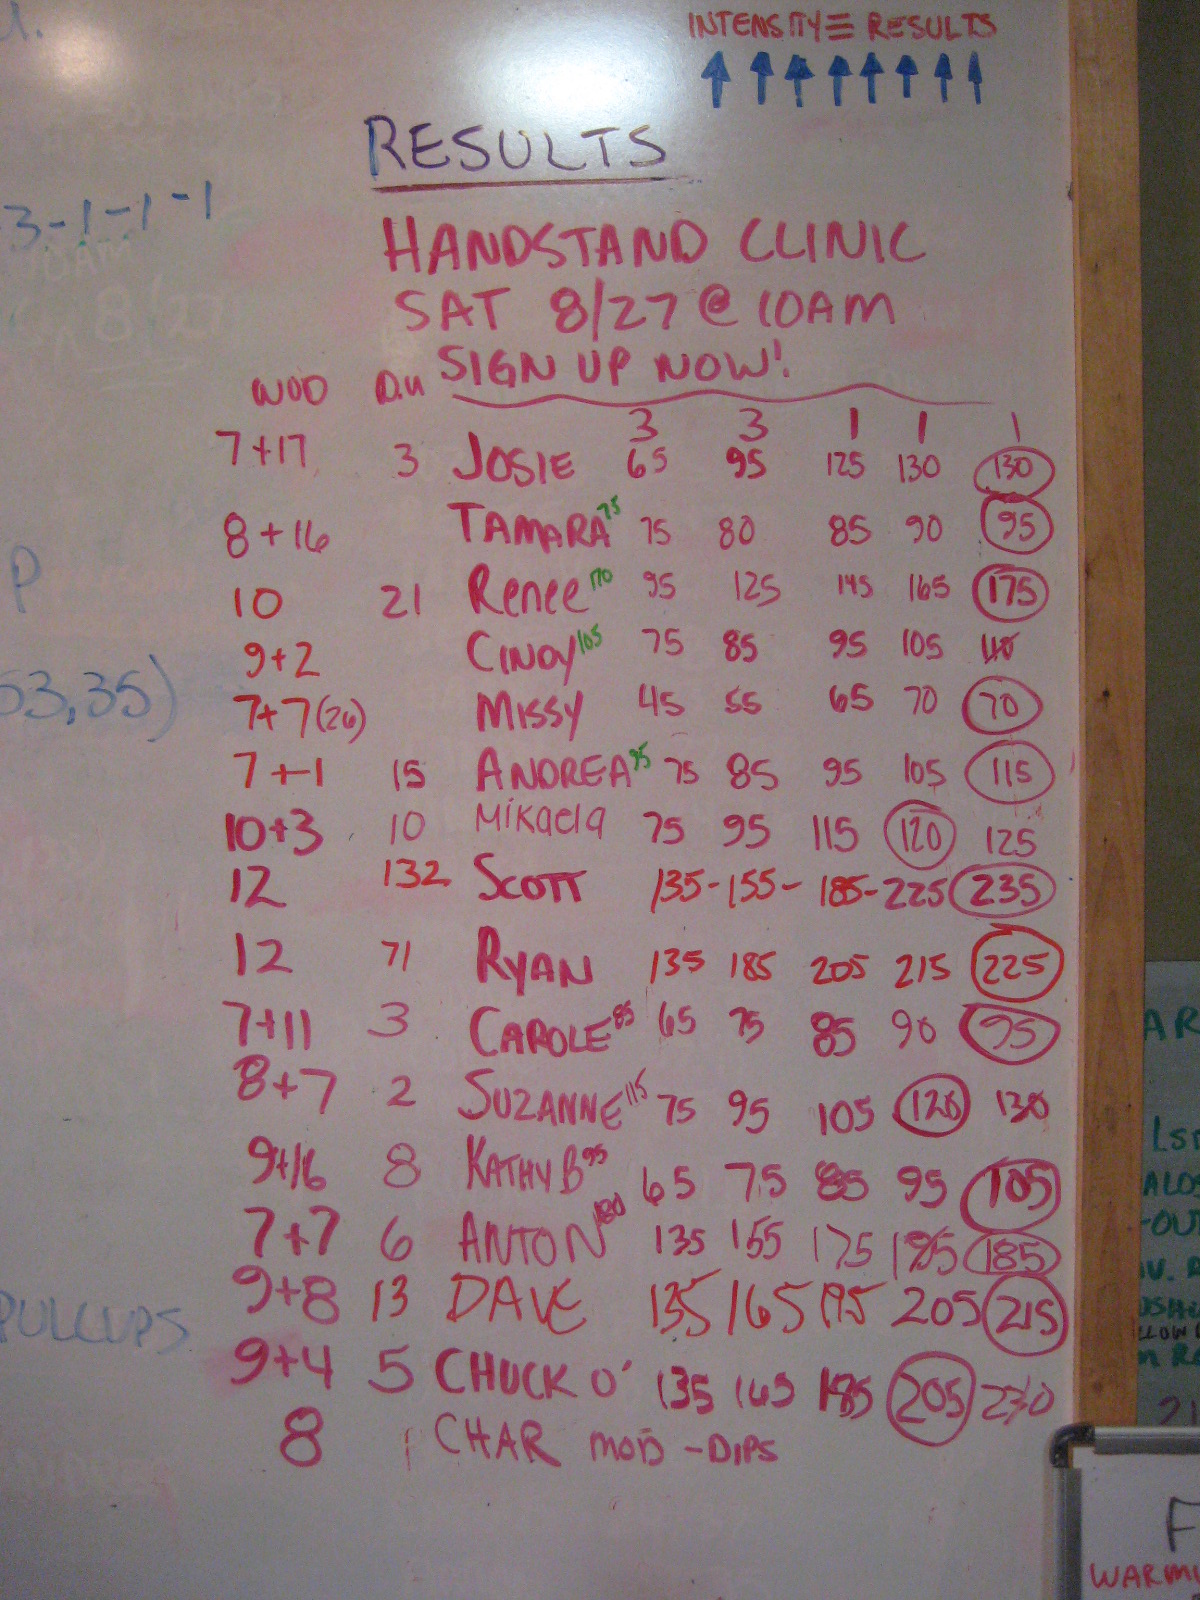 INTENSITY = RESULTS
RESULTS
3-1-1-1
HANDSTAND CLINIC
SAT 8/27 @ 10AM
SIGN UP NOW!
WOD D.U
3 3 1 1 1
7+17 3 JOSIE 65 95 125 130 130
8+16 TAMARA 75 75 80 85 90 95
P
10 21 Renee 170 95 125 145 165 175
9+2 CINDY 105 75 85 95 105 110
53,35)
7+7(26) MISSY 45 55 65 70 70
7+1 15 ANDREA 95 75 85 95 105 115
10+3 10 Mikaela 75 95 115 120 125
12 132 SCOTT 135-155-185-225 235
12 71 RYAN 135 185 205 215 225
7+11 3 CAROLE 85 65 75 85 90 95
8+7 2 SUZANNE 115 75 95 105 120 130
9+16 8 KATHY B 95 65 75 85 95 105
7+7 6 ANTON 180 135 155 175 195 185
9+8 13 DAVE 135 165 195 205 215
PULLUPS
9+4 5 CHUCK O' 135 165 185 205 230
8 1 CHAR MOD - DIPS
F